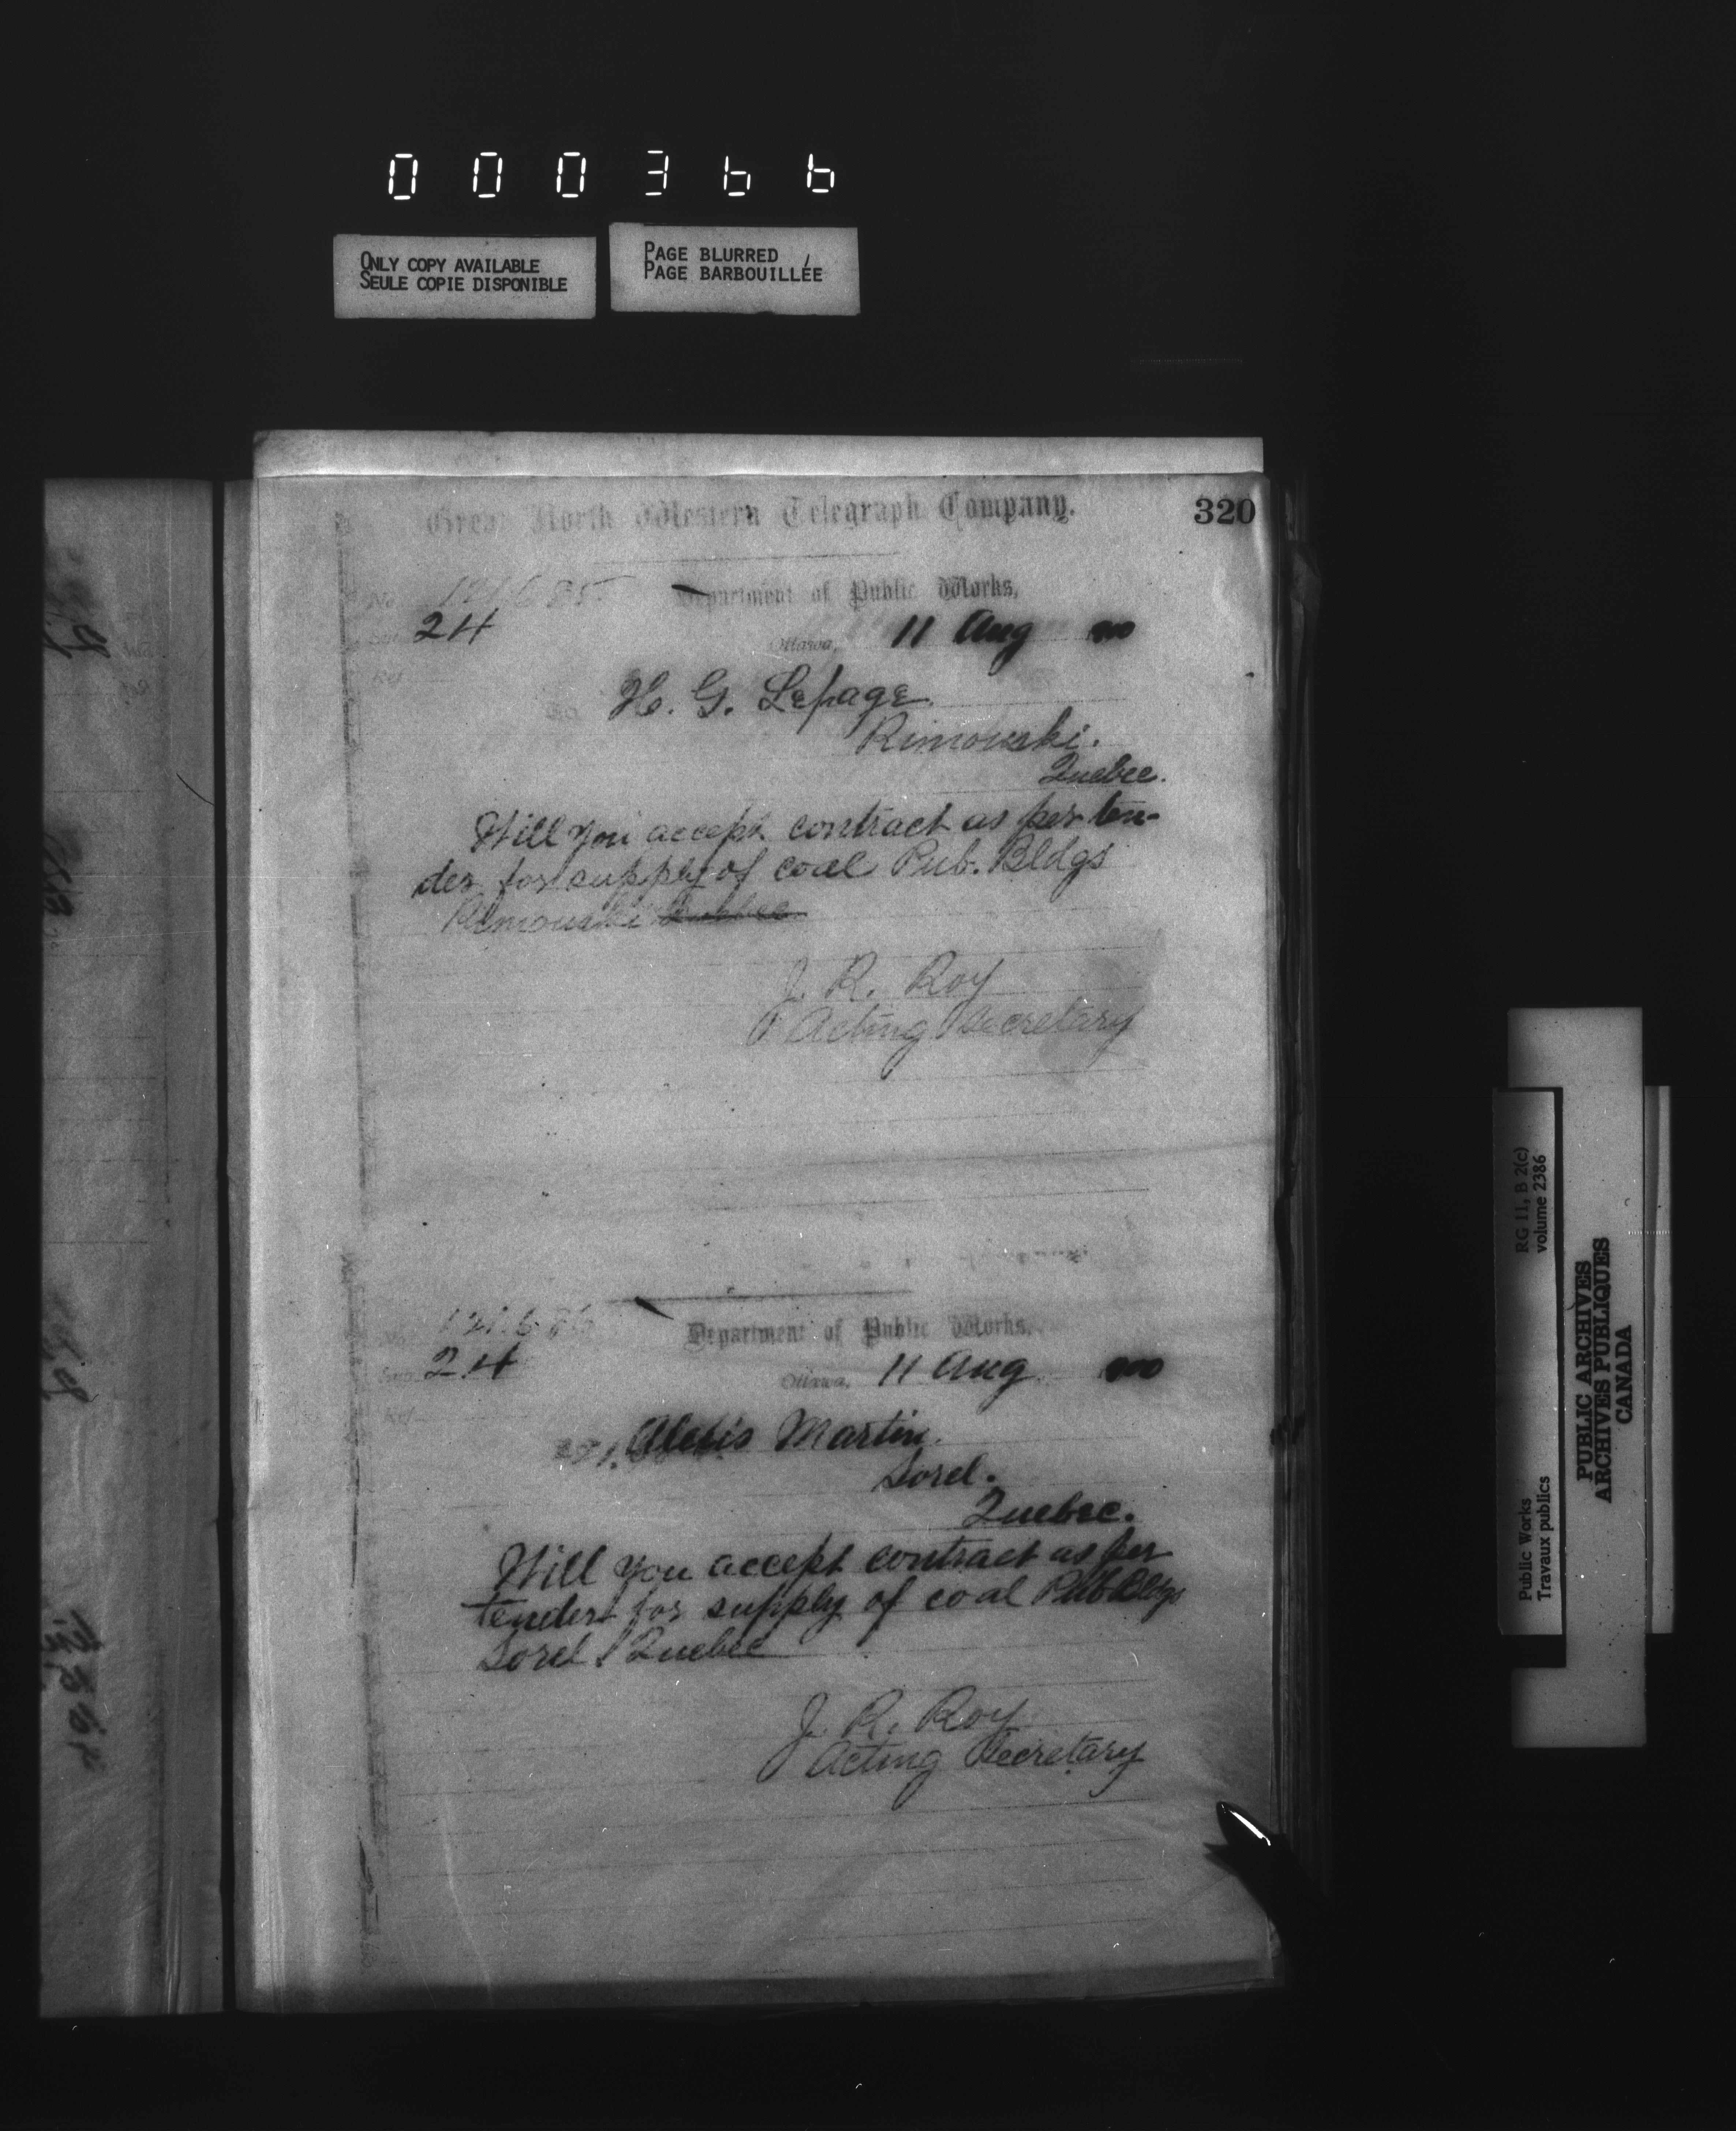 000366
ONLY COPY AVAILABLE
SEULE COPIE DISPONIBLE
PAGE BLURRED
PAGE BARBOUILLÉE
320
Great North Western Telegraph Company.
No. 121685
Department of Public Works,
24
Ottawa, 11 Aug 900
Ref
To H. G. Lepage
Rimouski.
Quebec.
Will you accept contract as per ten-
der for supply of coal Pub. Bldgs
Rimouski Quebec
J. R. Roy
Acting Secretary
No. 121686
Department of Public Works,
24
Ottawa, 11 Aug 900
Ref
Alexis Martin.
Sorel.
Quebec.
Will you accept contract as per
tender for supply of coal Pub Bldgs
Sorel Quebec
J. R. Roy
Acting Secretary
RG 11, B 2(c)
volume 2386
Public Works
Travaux publics
PUBLIC ARCHIVES
ARCHIVES PUBLIQUES
CANADA